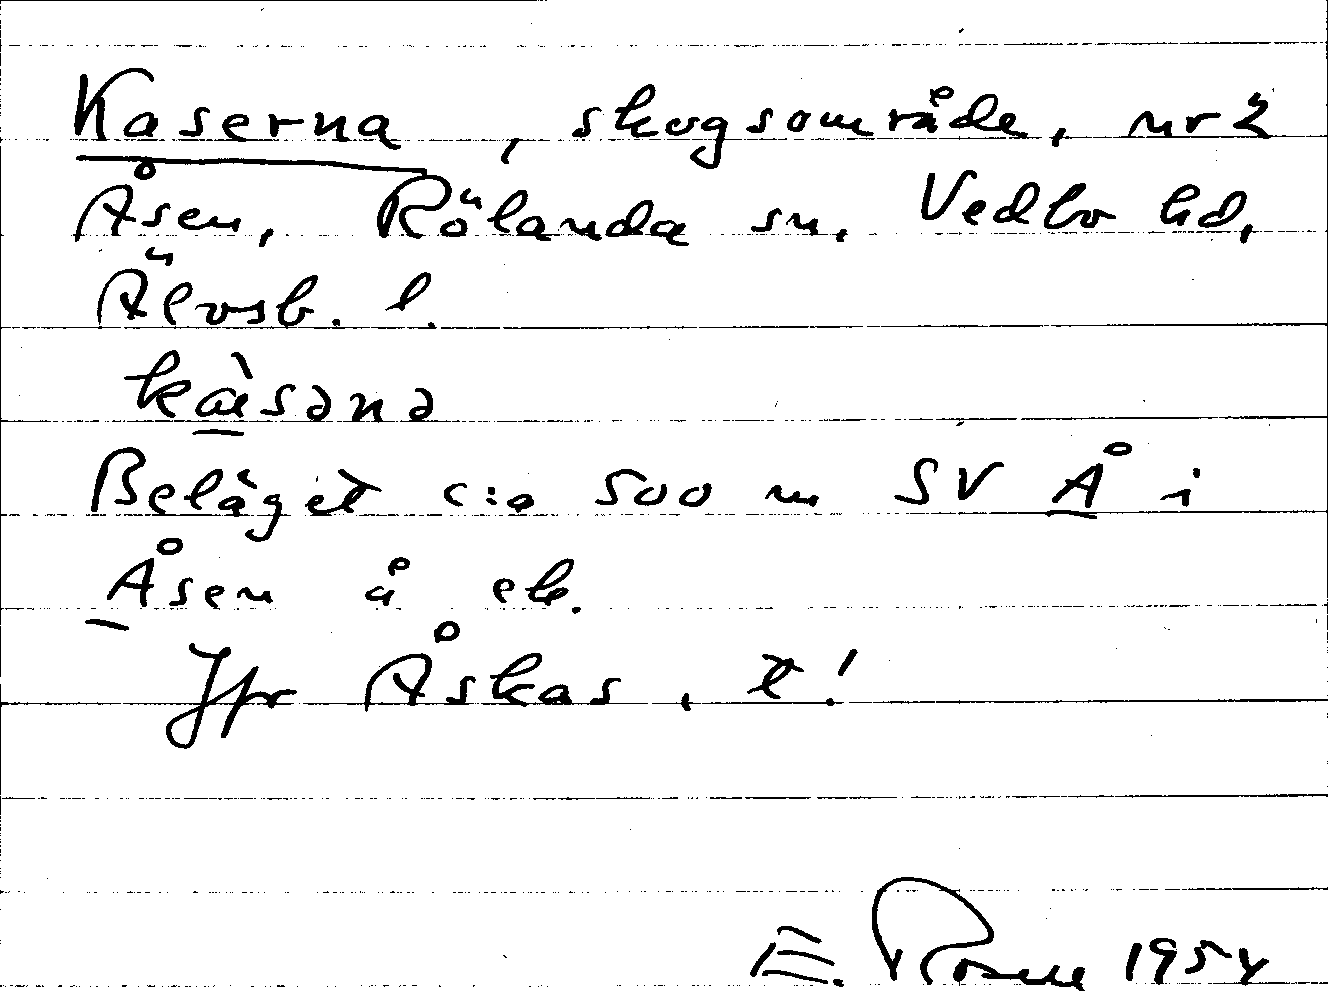 Kaserna, skogsområde, nr 2
Åsen, Rölanda sn, Vedbo hd,
Älvsb. l.
kàsənə
Beläget c:a 500 m SV Å i
Åsen å ek.
Jfr Åskas, t!
E. Rosell 1954